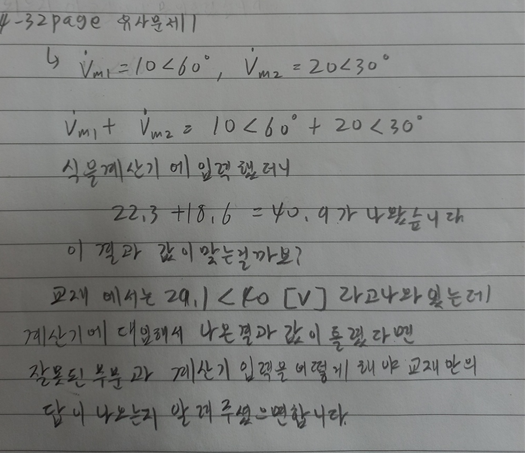 4-32page 유사문제 1
↳ V̇m1 = 10<60°, V̇m2 = 20<30°
V̇m1 + V̇m2 = 10<60° + 20<30°
식을 계산기에 입력했더니
22,3 + 18,6 = 40,9가 나왔습니다
이 결과 값이 맞는걸까요?
교재에서는 29,1<40 [V] 라고 나와있는데
계산기에 대입해서 나온 결과 값이 틀렸다면
잘못된 부분과 계산기 입력을 어떻게 해야 교재 안의
답이 나오는지 알려주셨으면합니다.